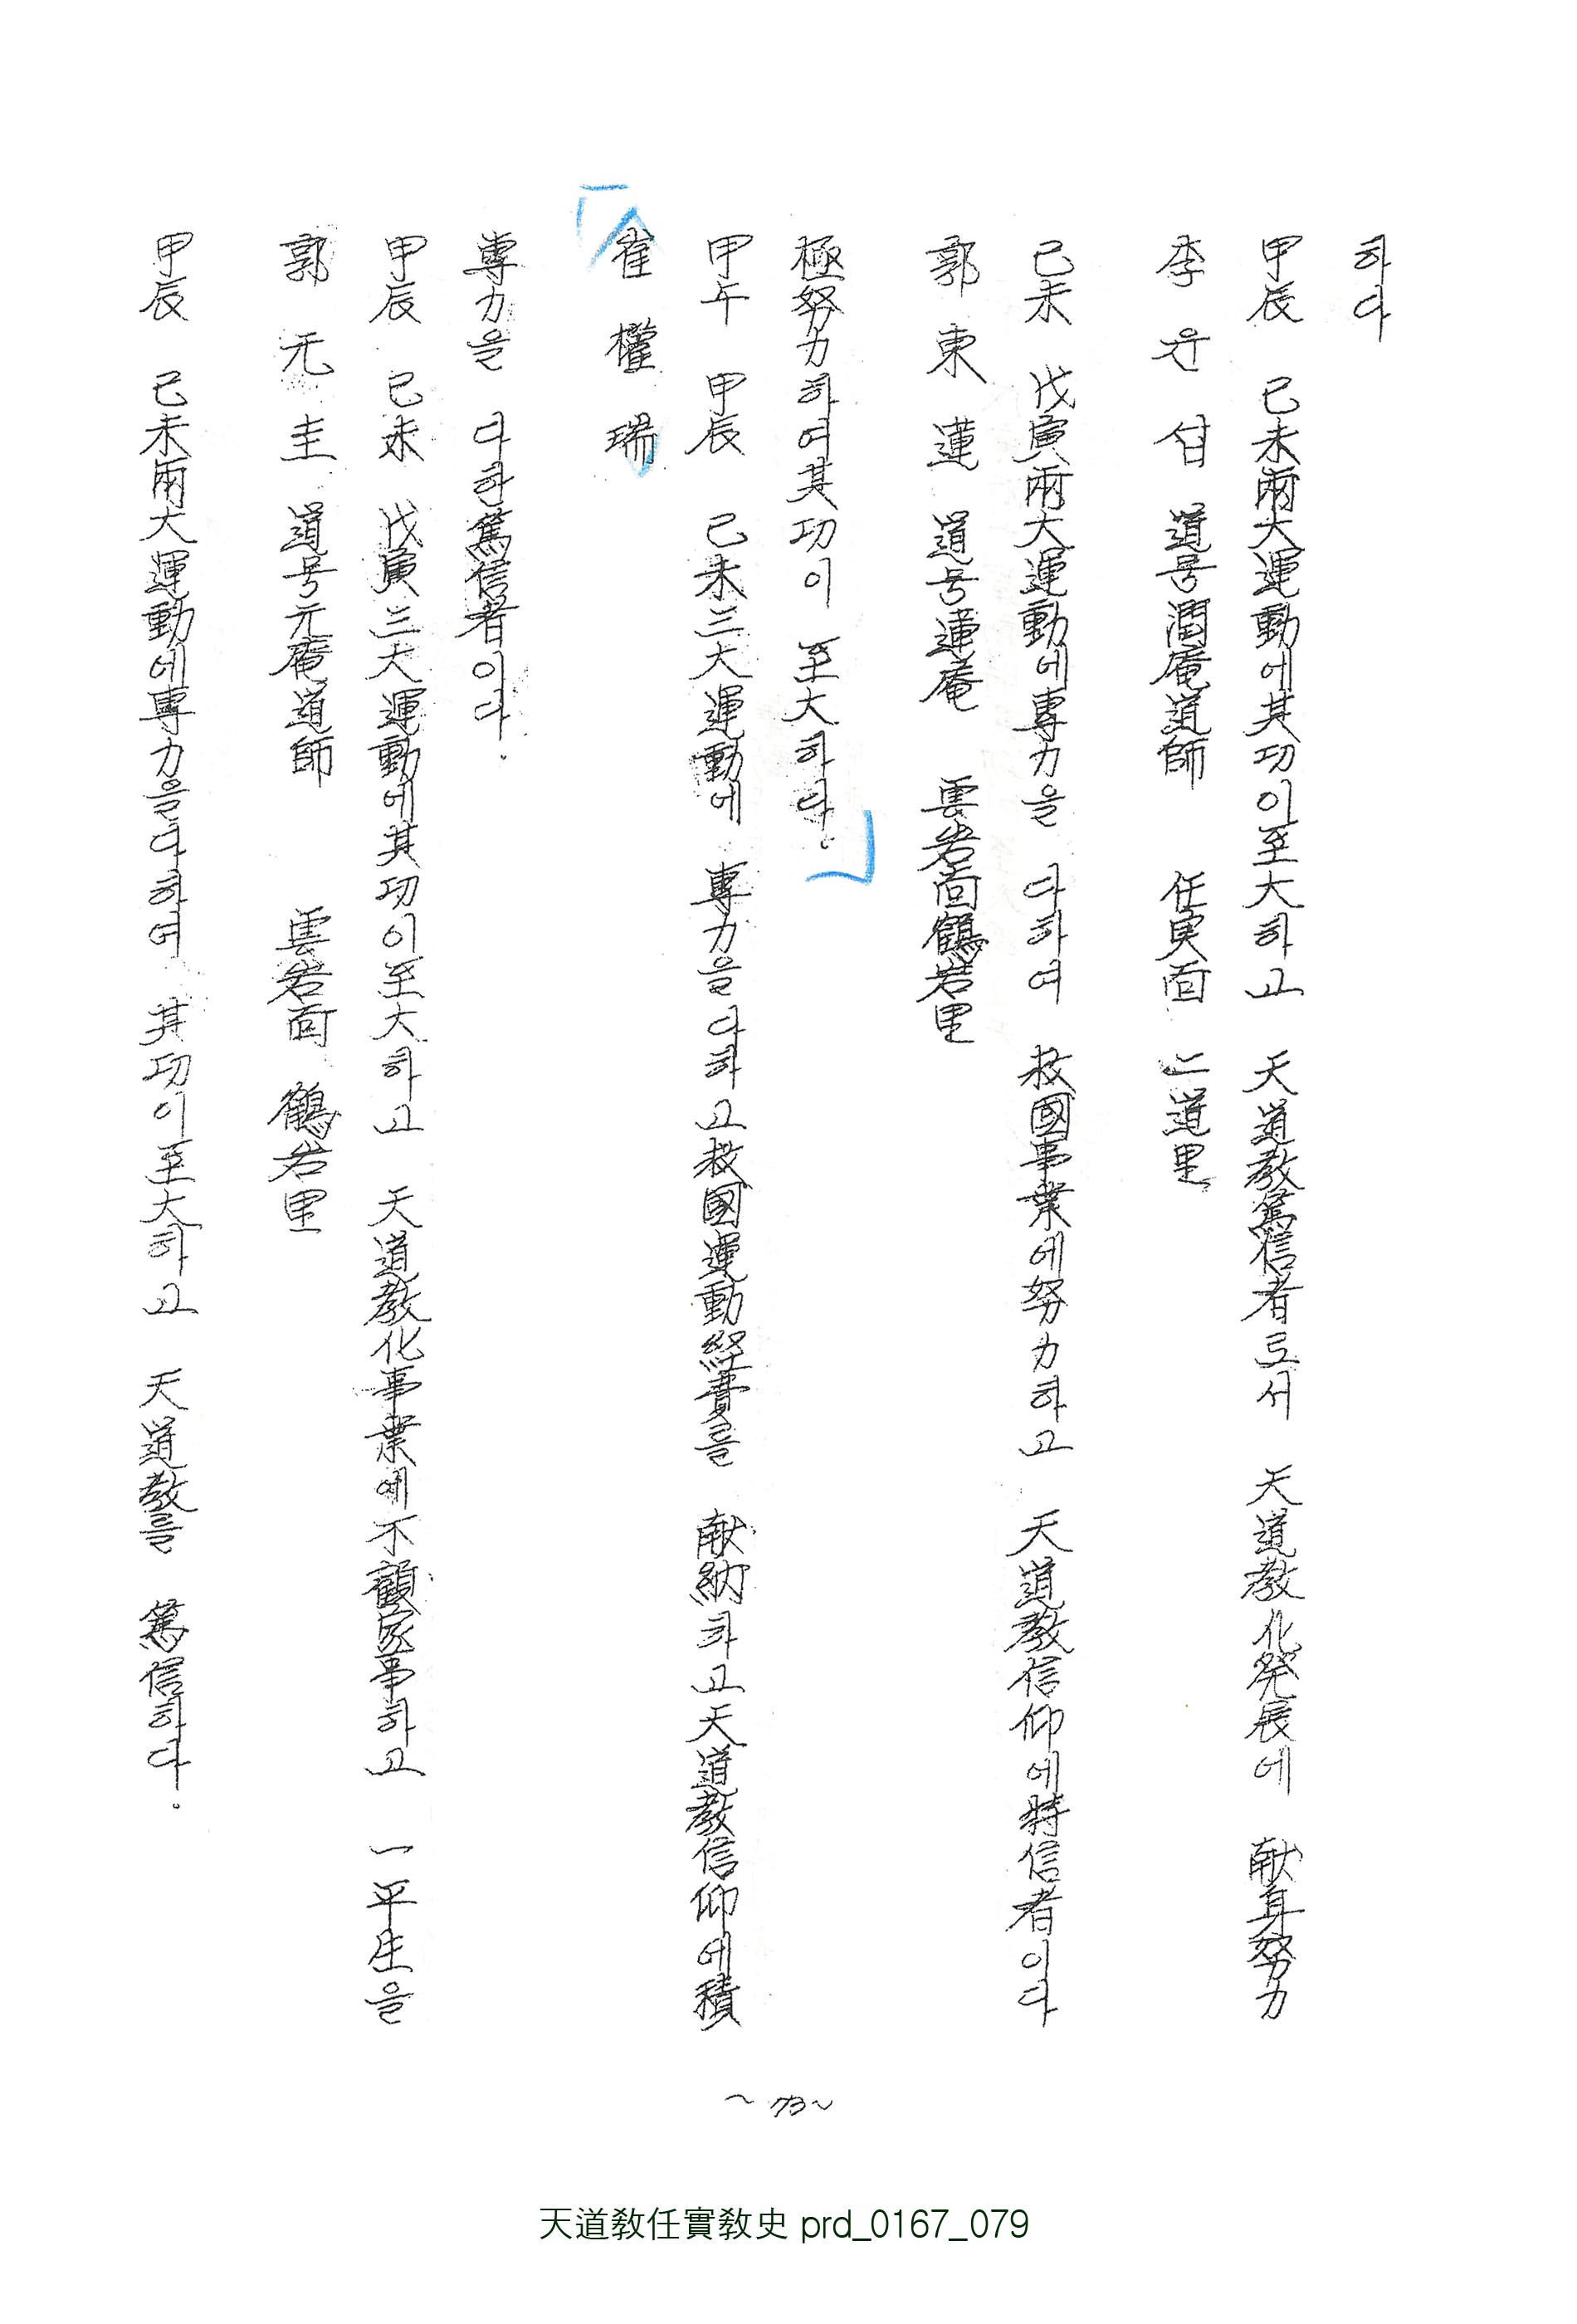 하다
甲辰 己未兩大運動에其功이至大하고 天道敎篤信者로서 天道敎化発展에 献身努力
李 윤 삼 道号潤菴道師 任実面 二道里
己未 戊寅兩大運動에專力을 다하여 救國事業에努力하고 天道敎信仰에特信者이다
郭東蓮 道号蓮菴 雲岩面鶴岩里
極努力하여其功이 至大하다.
甲午 甲辰 己未三大運動에 專力을다하고救國運動経費를 献納하고天道敎信仰에積
崔權瑞
專力을 다한篤信者이다.
甲辰 己未 戊寅三大運動에其功이至大하고 天道敎化事業에不顧家事하고 一平生을
郭元圭 道号元菴道師 雲岩面 鶴岩里
甲辰 己未兩大運動에專力을다하여 其功이至大하고 天道敎를 篤信하다.
~73~
天道敎任實敎史 prd_0167_079